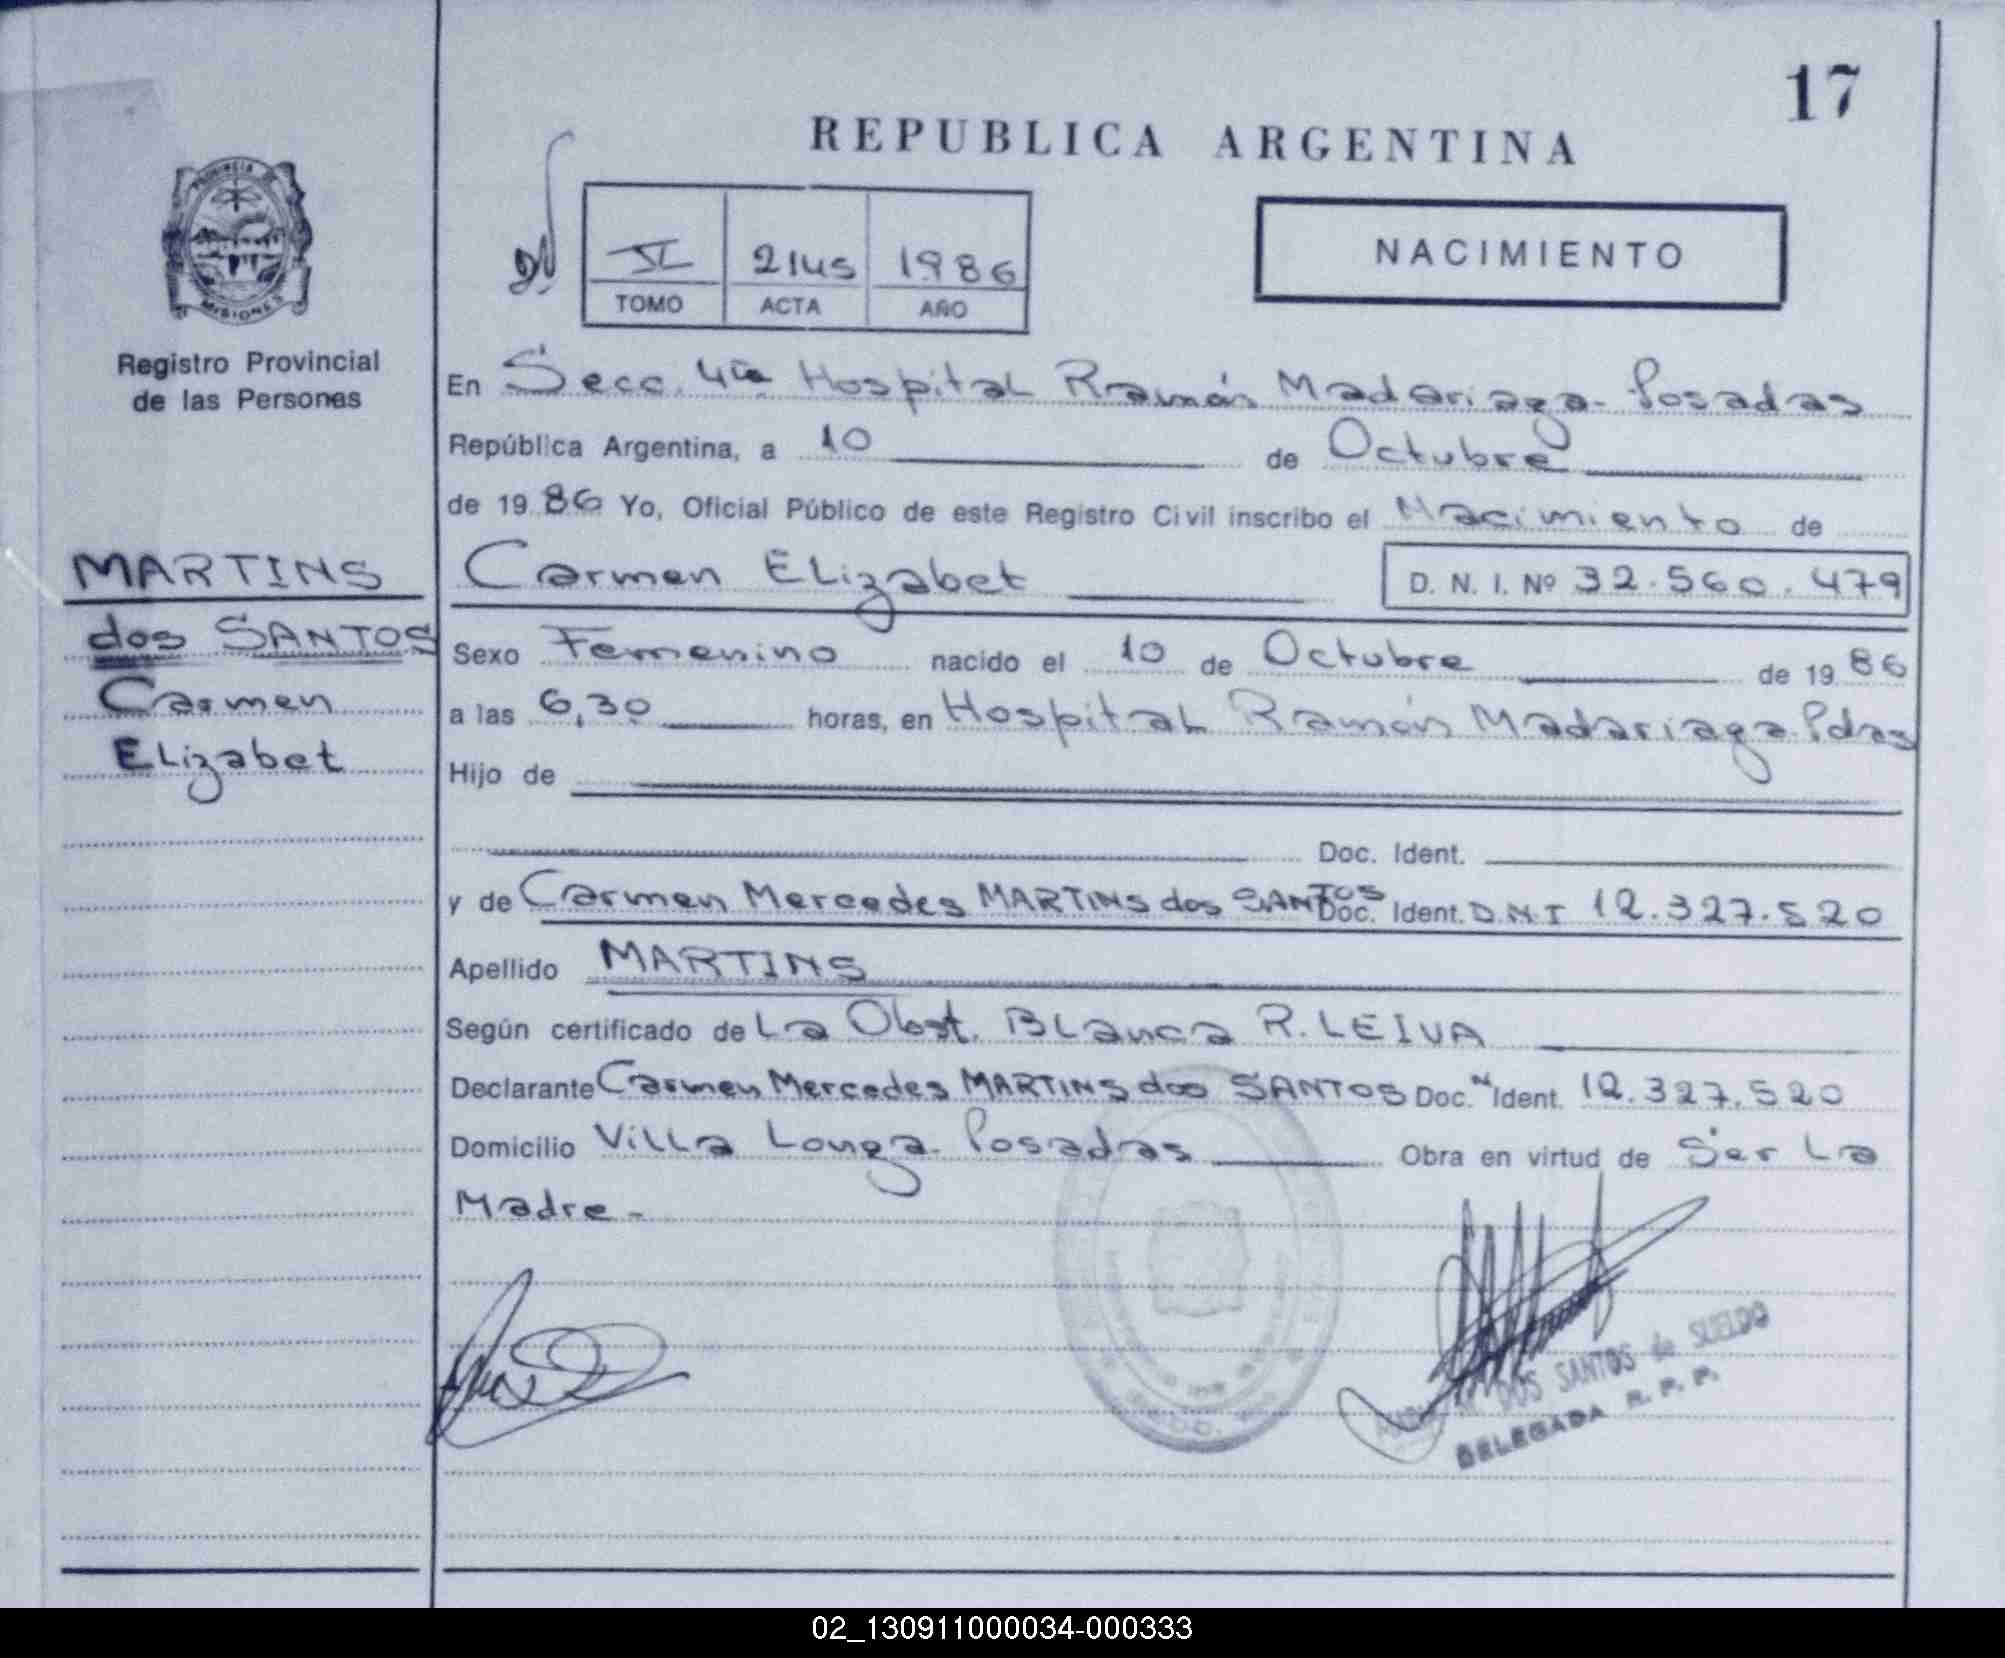 17
REPUBLICA ARGENTINA
PROVINCIA DE
MISIONES
Registro Provincial
de las Personas
VI 2145 1986
TOMO ACTA AÑO
NACIMIENTO
MARTINS
dos SANTOS
Carmen
Elizabet
En Secc. 4ta Hospital Ramón Madariaga - Posadas
República Argentina, a 10 de Octubre
de 19 86 Yo, Oficial Público de este Registro Civil inscribo el Nacimiento de
Carmen Elizabet D. N. I. Nº 32.560.479
Sexo Femenino nacido el 10 de Octubre de 19 86
a las 6,30 horas, en Hospital Ramón Madariaga Pdas
Hijo de
Doc. Ident.
y de Carmen Mercedes MARTINS dos SANTOS Doc. Ident. D.N.I 12.327.520
Apellido MARTINS
Según certificado de La Obst. Blanca R. LEIVA
Declarante Carmen Mercedes MARTINS dos SANTOS Doc. Ident. 12.327.520
Domicilio Villa Longa - Posadas Obra en virtud de Ser La
Madre -
DOS SANTOS de SUELDO
DELEGADA R. P. P.
02_130911000034-000333